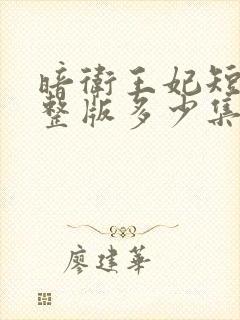 暗衛王妃短
整版多少集
廖建華